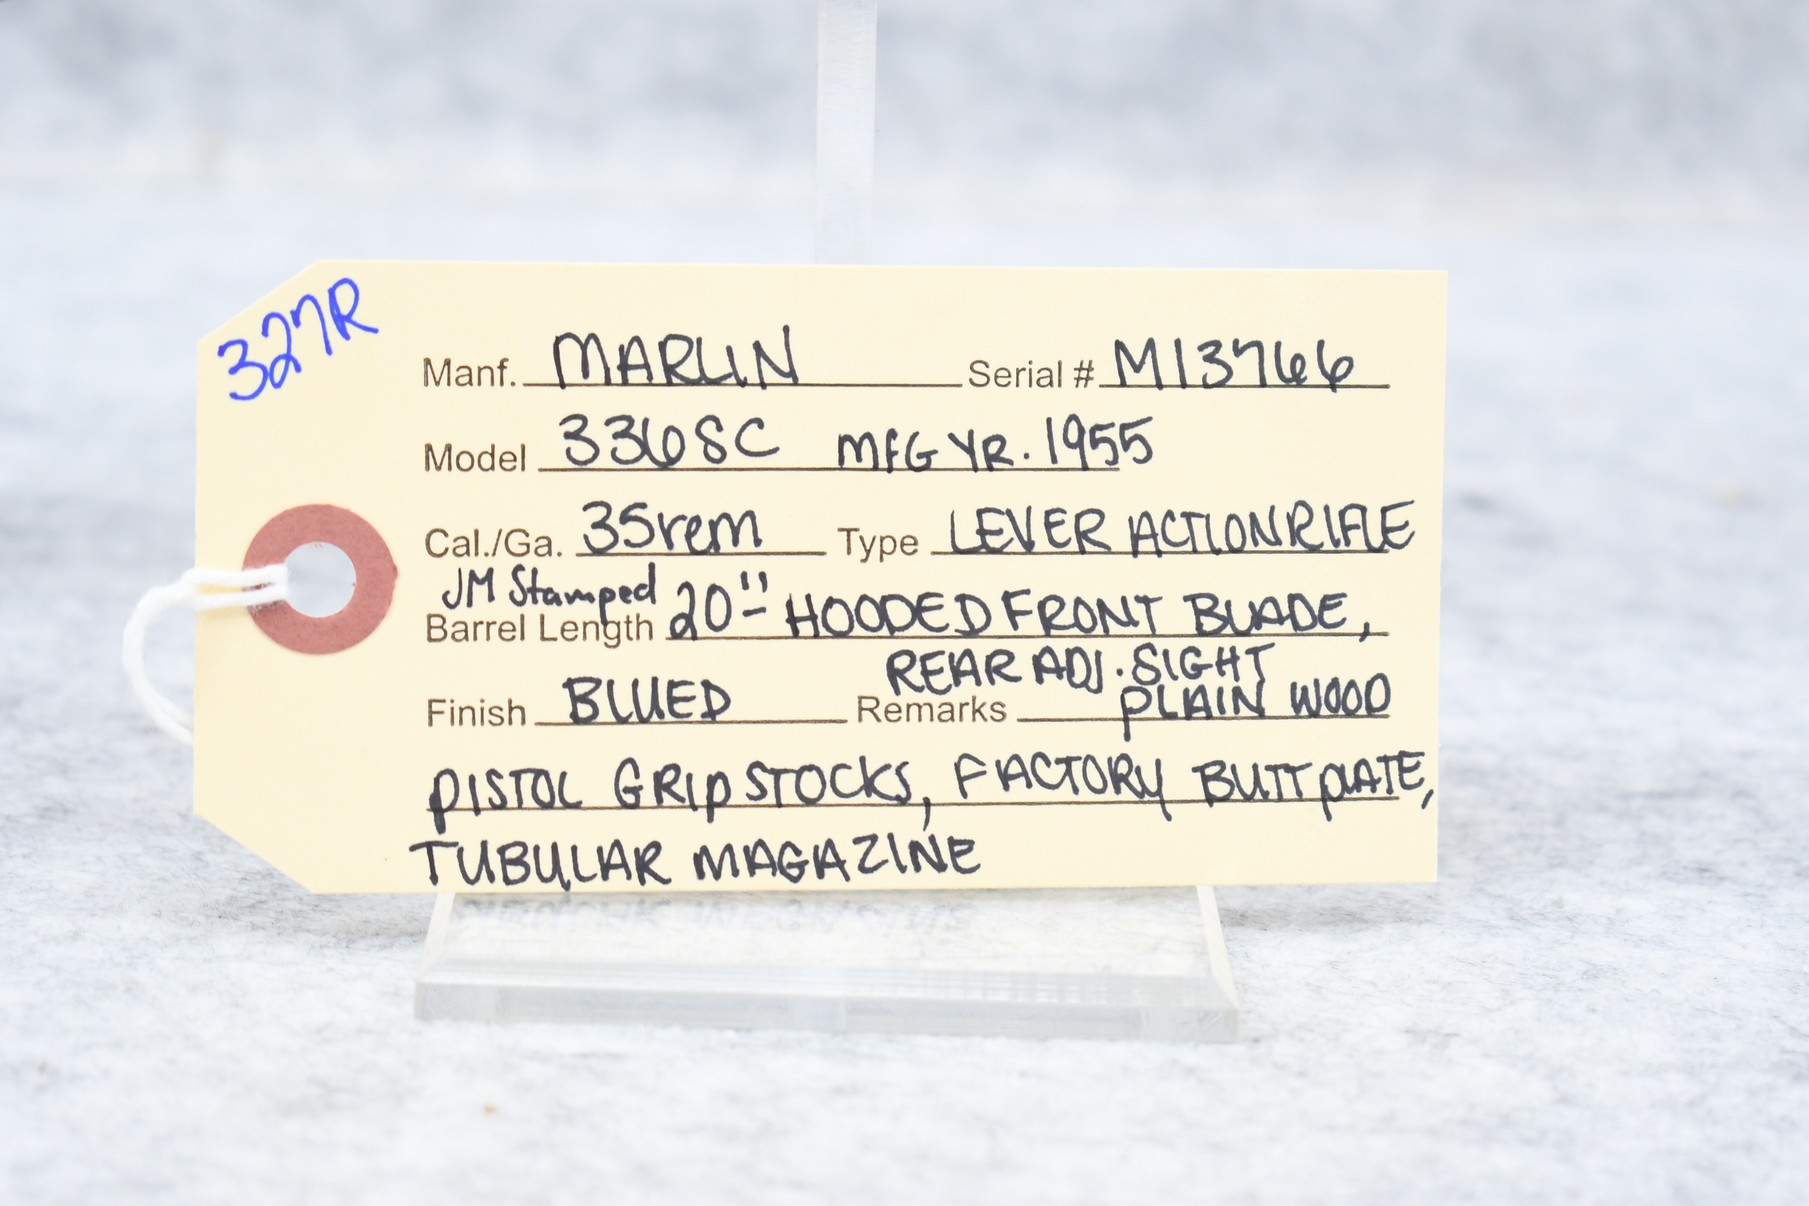 327R
Manf. MARLIN Serial # M13766
Model 336SC MFG YR. 1955
Cal./Ga. 35rem Type LEVER ACTION RIFLE
JM Stamped
Barrel Length 20" HOODED FRONT BLADE,
REAR ADJ. SIGHT
Finish BLUED Remarks PLAIN WOOD
PISTOL GRIP STOCKS, FACTORY BUTTPLATE,
TUBULAR MAGAZINE